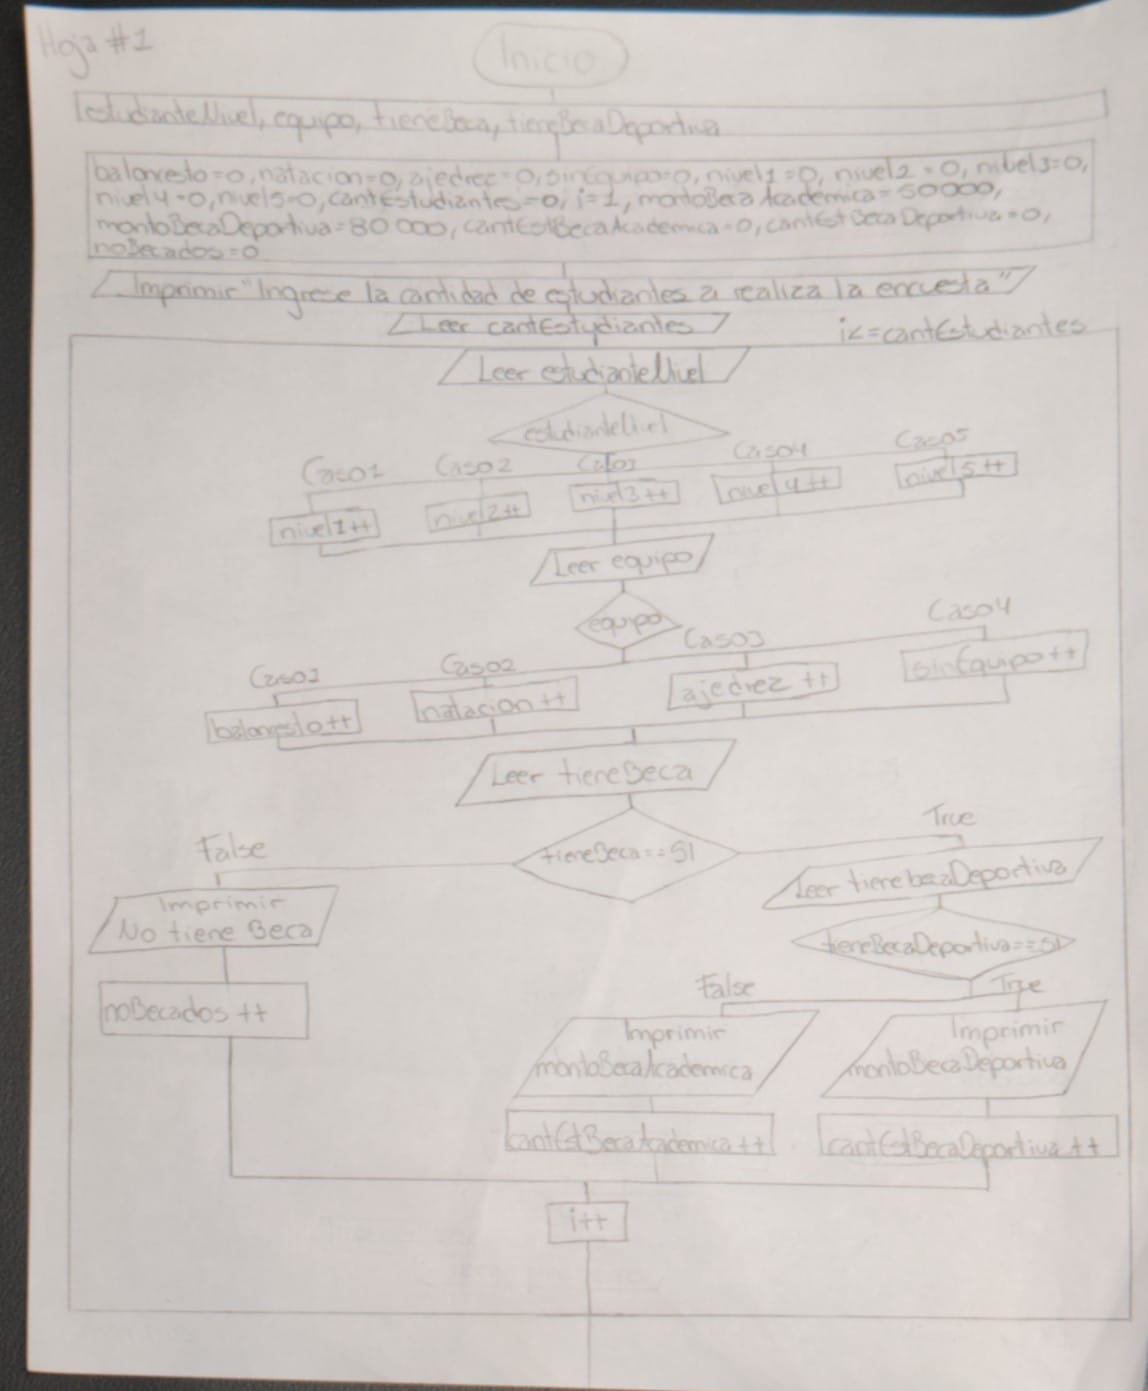 Hoja #1
Inicio
estudianteNivel, equipo, tieneBeca, tieneBecaDeportiva
baloncesto=0, natacion=0, ajedrec=0, sinEquipo=0, nivel1=0, nivel2=0, nibel3=0,
nivel4=0, nivel5=0, cantEstudiantes=0, i=1, montoBecaAcadémica=50000,
montoBecaDeportiva=80 000, cantEstBecaAcademica=0, cantEstBecaDeportiva=0,
noBecados=0
Imprimir "Ingrese la cantidad de estudiantes a realiza la encuesta"
Leer cantEstydiantes
i<=cantEstudiantes
Leer estudianteNivel
estudianteNivel
Caso1 Caso2 Caso3 Caso4 Caso5
nivel1++ nivel2++ nivel3++ nivel4++ nivel5++
Leer equipo
equipo
Caso1 Caso2 Caso3 Caso4
baloncesto++ natacion++ ajedrez ++ sinEquipo++
Leer tieneBeca
tieneBeca==SI
False True
Imprimir
No tiene Beca
noBecados ++
Leer tienebecaDeportiva
tieneBecaDeportiva==SI
False True
Imprimir
montoBecaAcademica
cantEstBecaAcademica++
Imprimir
montoBecaDeportiva
cantEstBecaDeportiva++
i++